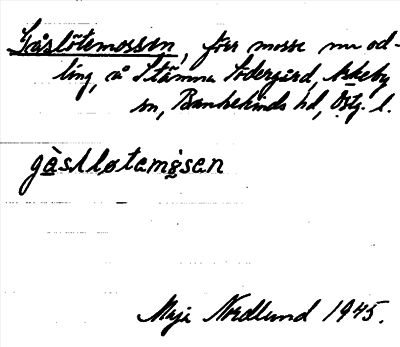 Gåslötemossen, förr mosse nu od-
ling, å Stämna Södergård, Askeby
sn, Bankekinds hd, Östg. l.
gåslløtemɷsen
Maja Nordlund 1945.